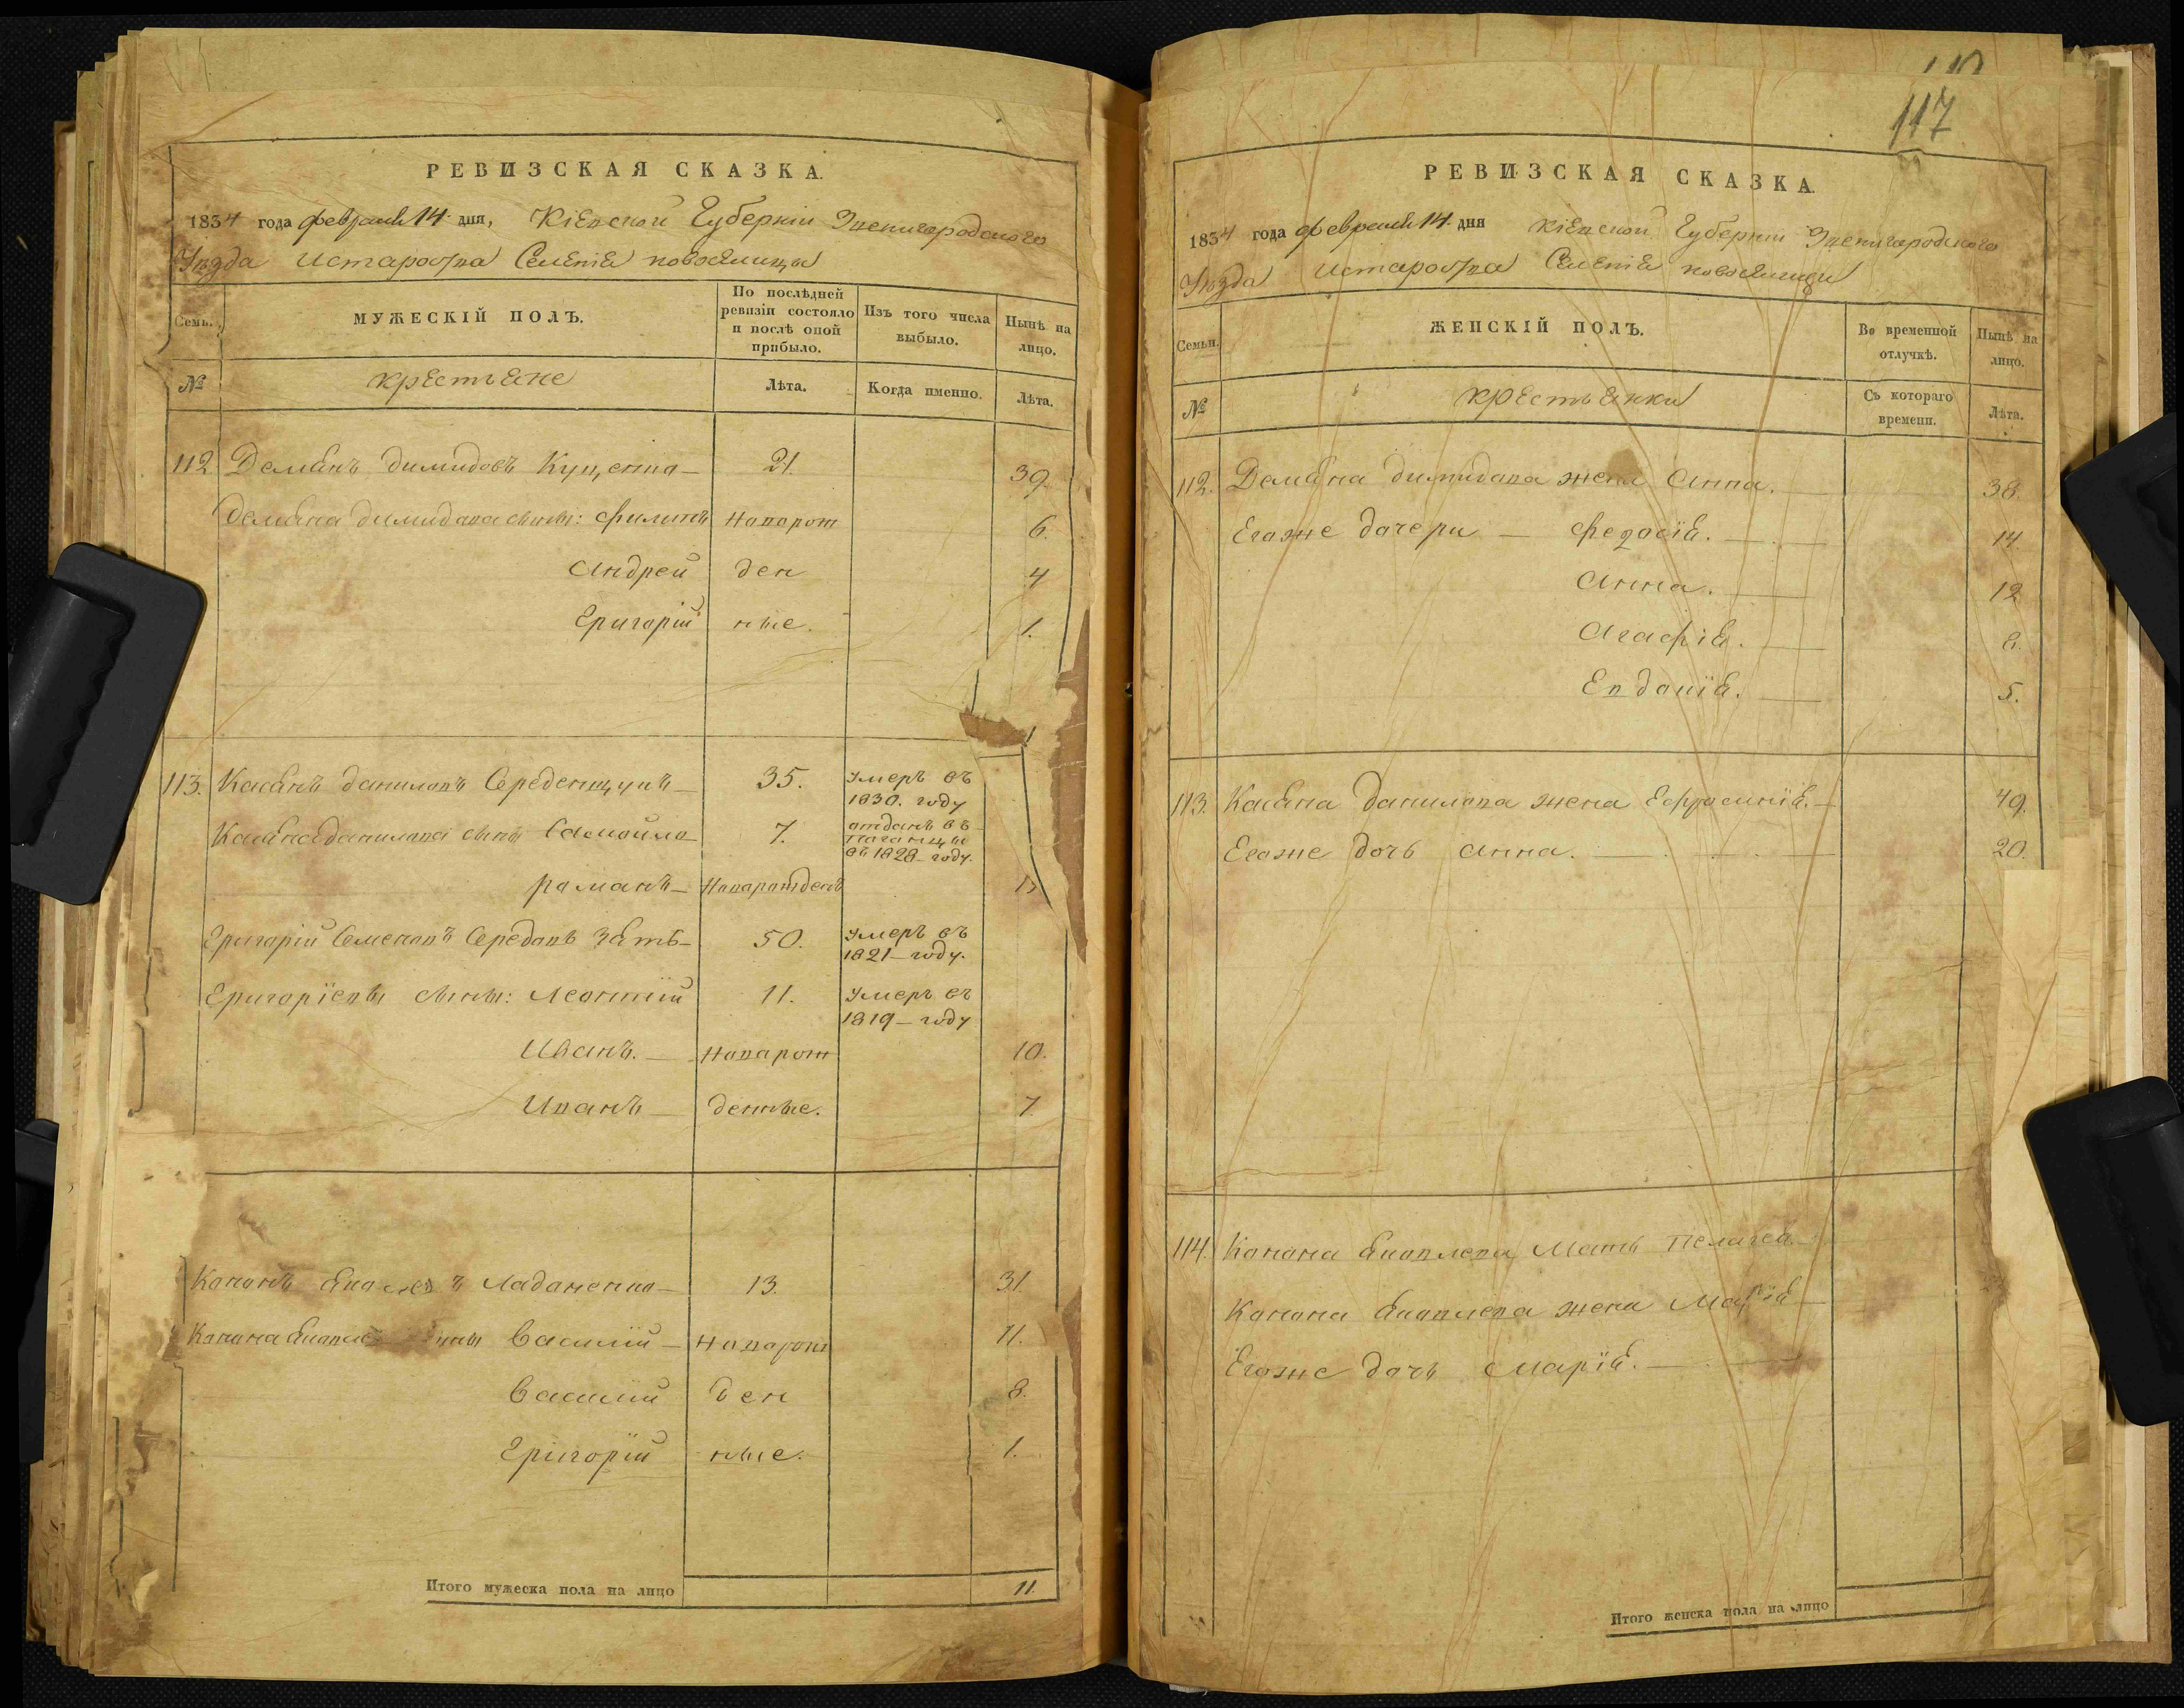 РЕВИЗСКАЯ СКАЗКА.
1834 года февраля 14 дня, Кіевской Губерніи Звенигородского
Уѣзда Староства Селенія новоселицы
Семьи.
МУЖЕСКІЙ ПОЛЪ.
По послѣдней ревизіи состояло и послѣ оной прибыло.
Изъ того числа выбыло.
Нынѣ на лицо.
№
крестьяне
Лѣта.
Когда именно.
Лѣта.
112 Демянъ димидовъ Куценко 21. 39.
демяна димидова сыны: филипъ новорож 6.
Андрей ден 4
Григорій ные. 1.
113. Касянъ даниловъ Середенщукъ 35. умеръ въ 1830. году
Касяна данилова сыны Самойло 7. отданъ въ поганцы въ 1828 году.
романъ новорожденъ
Григорій Семеновъ Середовъ Зять 50. умеръ въ 1821 году.
Григоріевы сыны: Леонтій 11. умеръ въ 1819 году
Иванъ. новорож 10.
Иванъ денные. 7
Кононъ Ладаненко 13. 31.
Конона Василій новорож 11.
Василій ден 8.
Григорій ные. 1.
Итого мужеска пола на лицо 11.
117
РЕВИЗСКАЯ СКАЗКА.
1834 года февраля 14 дня Кіевской Губерніи Звенигородского
Уѣзда Староства Селенія новоселицы
Семьи.
ЖЕНСКІЙ ПОЛЪ.
Во временной отлучкѣ.
Нынѣ на лицо.
№
крестьянки
Съ котораго времени.
Лѣта.
112. Демяна димидова жена Анна. 38.
Егоже дочери Федосія. 14.
Анна. 12
Агафія. 8.
Евдокія. 5.
113. Касяна данилова жена Ефросинія. 49.
Егоже дочь Анна. 20.
114. Конона Яковлева Мать Пелагея
Конона Яковлева жена Марія
Егоже дочь Марія.
Итого женска пола на лицо